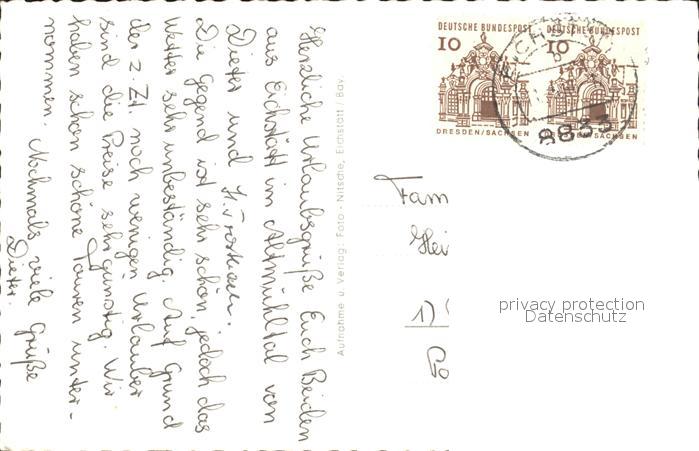 Herzliche Urlaubsgrüße Euch Beiden
aus Eichstätt im Altmühltal von
Dieter und
Die Gegend ist sehr schön, jedoch das
Wetter sehr unbeständig. Auf Grund
der z. Zt. noch wenigen Urlauber
sind die Preise sehr günstig. Wir
haben schon schöne Touren unter-
nommen. Nochmals viele Grüße
Dieter.
Aufnahme u. Verlag: Foto-Nitsche, Eichstätt / Bay.
DEUTSCHE BUNDESPOST
10
DRESDEN/SACHSEN
DEUTSCHE BUNDESPOST
10
DRESDEN/SACHSEN
Fam
Hei
1)
privacy protection
Datenschutz